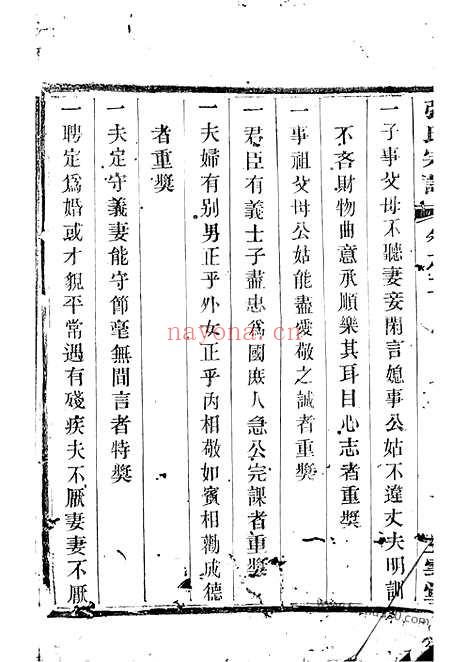 張氏宗譜
一子事父母不聽妻妾閑言媳事公姑不違丈夫明訓
不吝財物曲意承順樂其耳目心志者重獎
一事祖父母公姑能盡愛敬之誠者重獎
一君臣有義士子盡忠爲國庶人急公完課者重獎
一夫婦有别男正乎外女正乎內相敬如賓相勸成德
者重獎
一夫定守義妻能守節毫無間言者特獎
一聘定爲婚或才貌平常遇有殘疾夫不厭妻妻不厭
nayona.cn